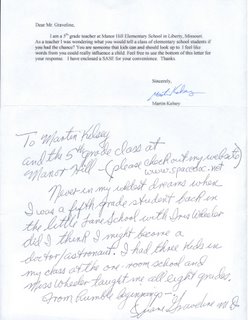 Dear Mr. Graveline,
I am a 5th grade teacher at Manor Hill Elementary School in Liberty, Missouri.
As a teacher I was wondering what you would tell a class of elementary school students if
you had the chance? You are someone that kids can and should look up to. I feel like
words from you could really influence a child. Feel free to use the bottom of this letter for
your response. I have enclosed a SASE for your convenience. Thanks
Sincerely,
Martin Kelsey
Martin Kelsey
To Martin Kelsey
and the 5th grade class at
Manor Hill - (please check out my website)
www.spacedoc.net
Never in my wildest dreams when
I was a fifth grade student back in
the little Lane School with Ms Wheeler
did I think I might become a
doctor/astronaut. I had three kids in
my class at the one-room school and
Miss Wheeler taught me all eight grades.
From humble beginnings -!
Duane Graveline M.D.